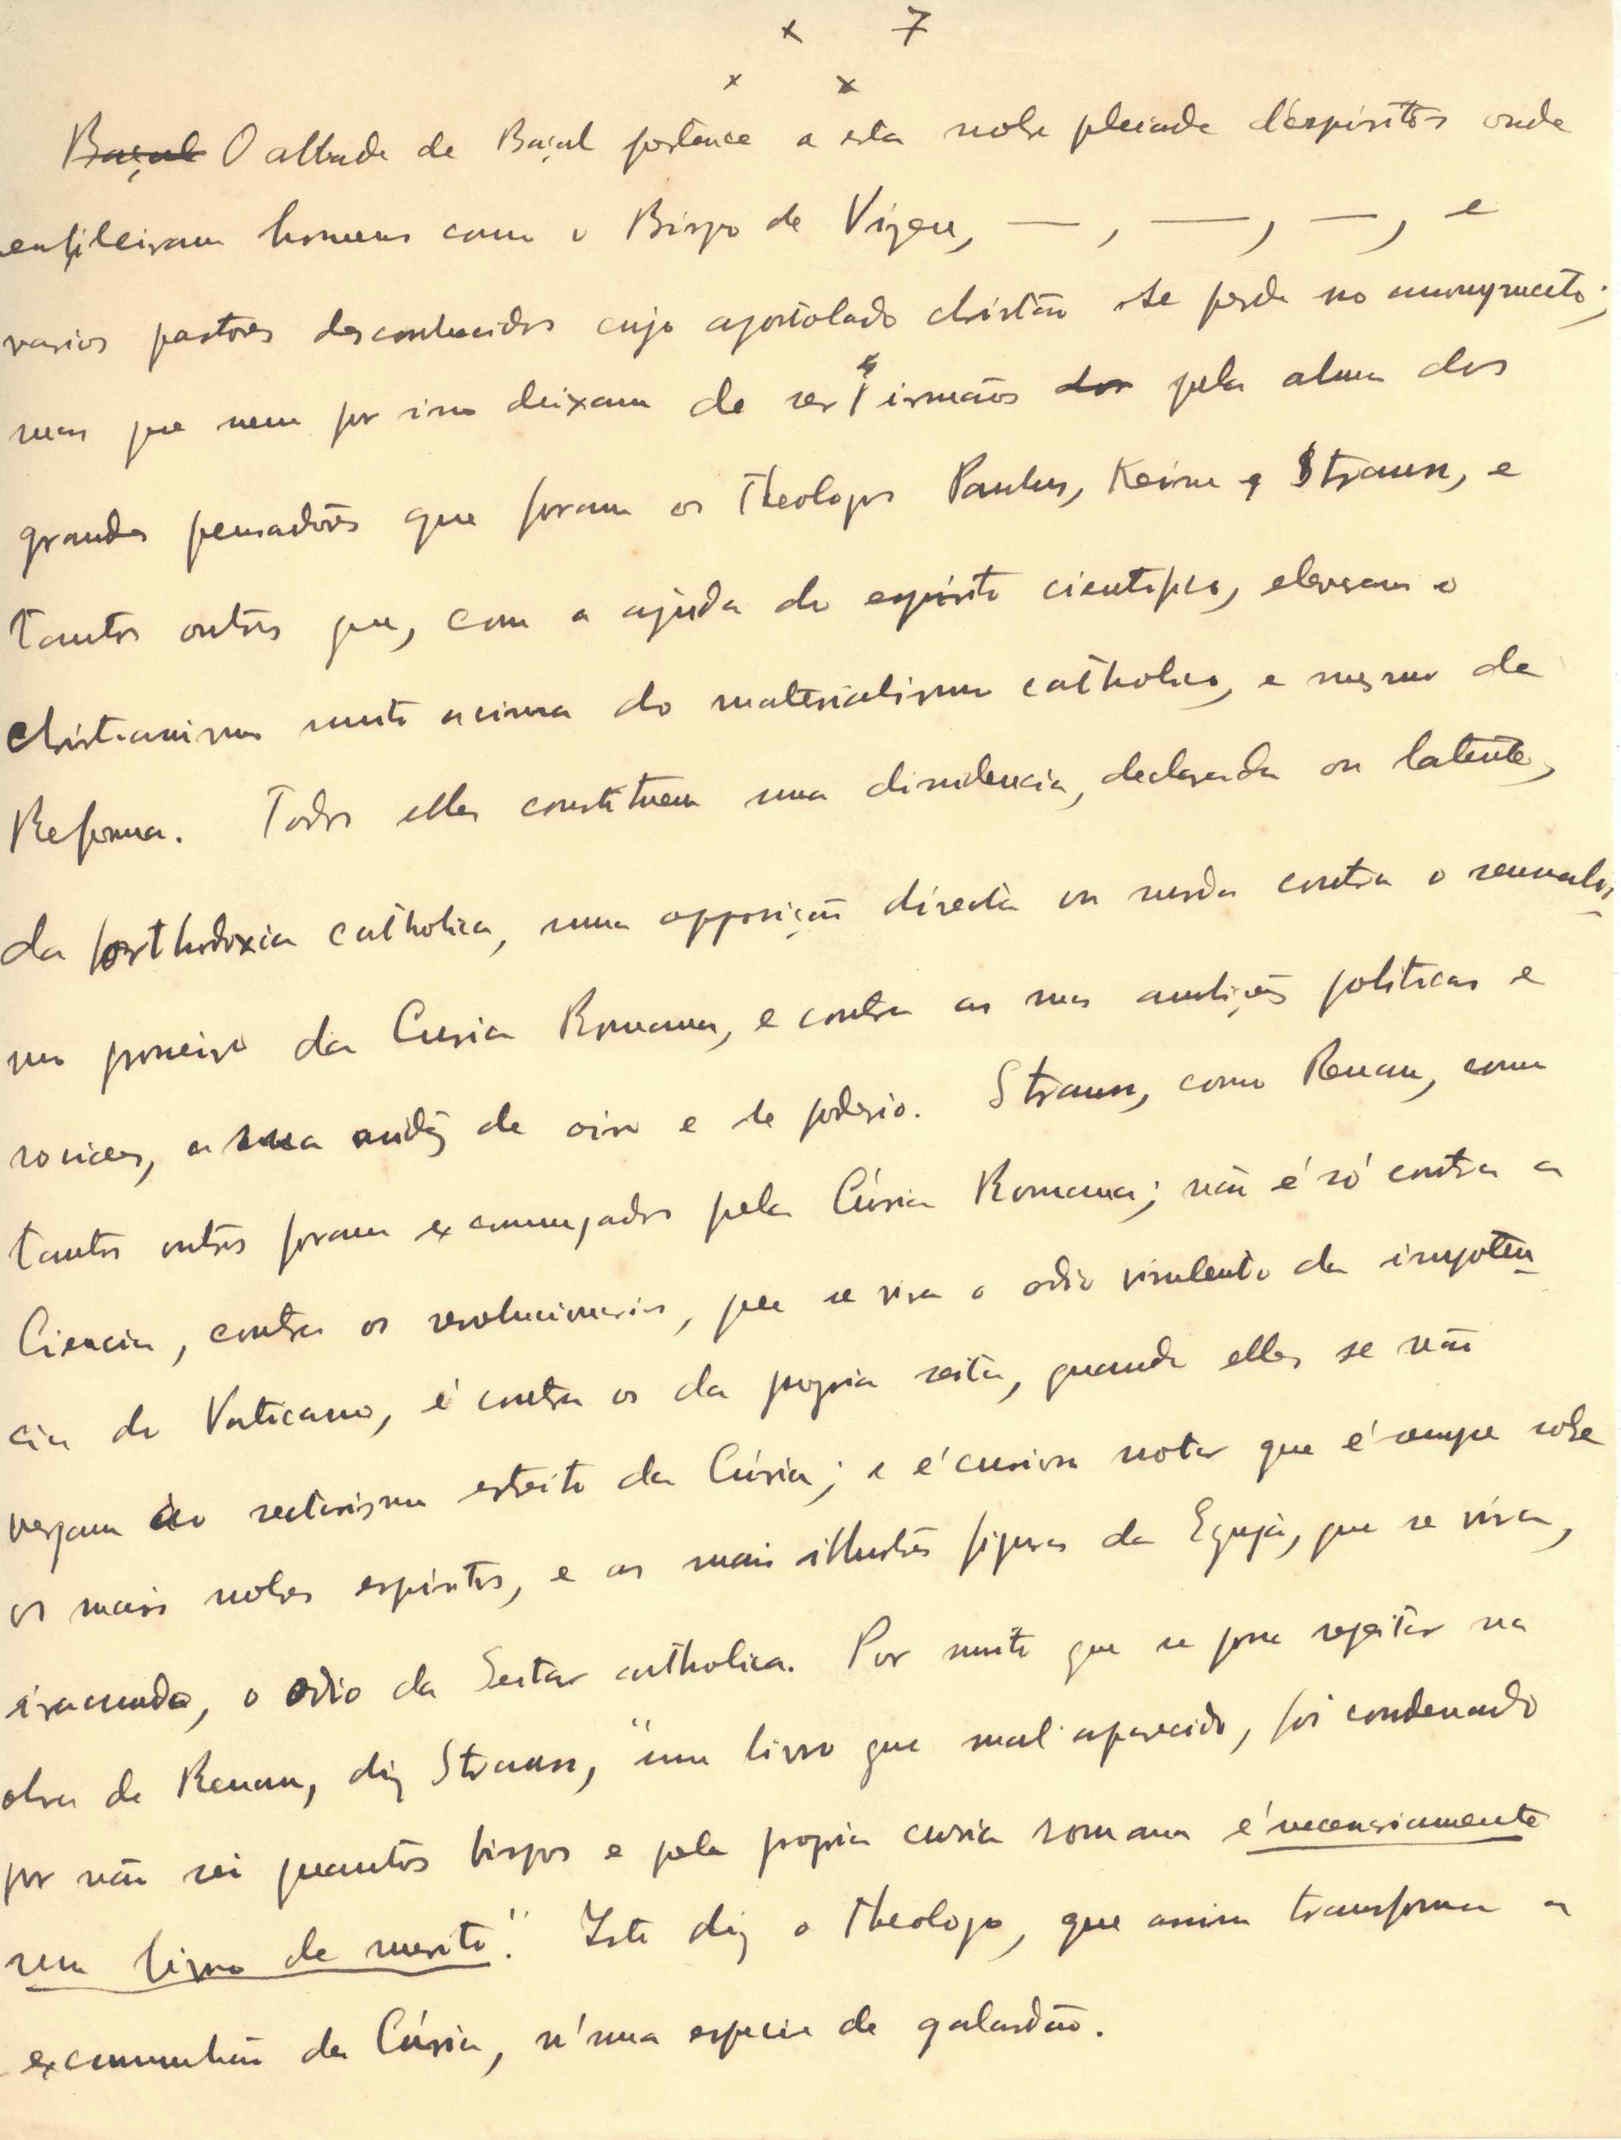 x 7
x x
Baçal O abbade de Baçal pertence a esta nobre pleiade d'espiritos onde
enfileiram homens como o Bispo de Vizeu, — , — , — , e
varios pastores desconhecidos cujo apostolado christão se perde no anonymato;
mas que nem por isso deixam de ser irmãos dos pela alma dos
grandes pensadores que foram os Theologos Paulus, Keim e Strauss, e
tantos outros que, com a ajuda do espirito cientifico, elevaram o
christianismo muito acima do materialismo catholico, e mesmo da
Reforma. Todos elles constituem uma dissidencia, declarada ou latente,
da orthodoxia catholica, uma opposição directa ou surda contra o sensualis-
mo grosseiro da Curia Romana, e contra as suas ambições politicas e
sociaes, a sua avidez de oiro e de poderio. Strauss, como Renan, como
tantos outros foram excomungados pela Cúria Romana; não é só contra a
Ciencia, contra os revolucionarios, que se vira o odio virulento da impoten-
cia do Vaticano, é contra os da propria seita, quando elles se não
vergam ao sectarismo estreito da Cúria; e é curioso notar que é sempre sobre
os mais nobres espiritos, e as mais illustres figuras da Egreja, que se vira,
iracundo, o odio da Seita catholica. Por muito que se possa rejeitar na
obra de Renan, diz Strauss, "um livro que mal aparecido, foi condenado
por não sei quantos bispos e pela propria curia romana é necessariamente
um livro de merito". Isto diz o Theologo, que assim transforma a
excomunhão da Cúria, n'uma especie de galardão.